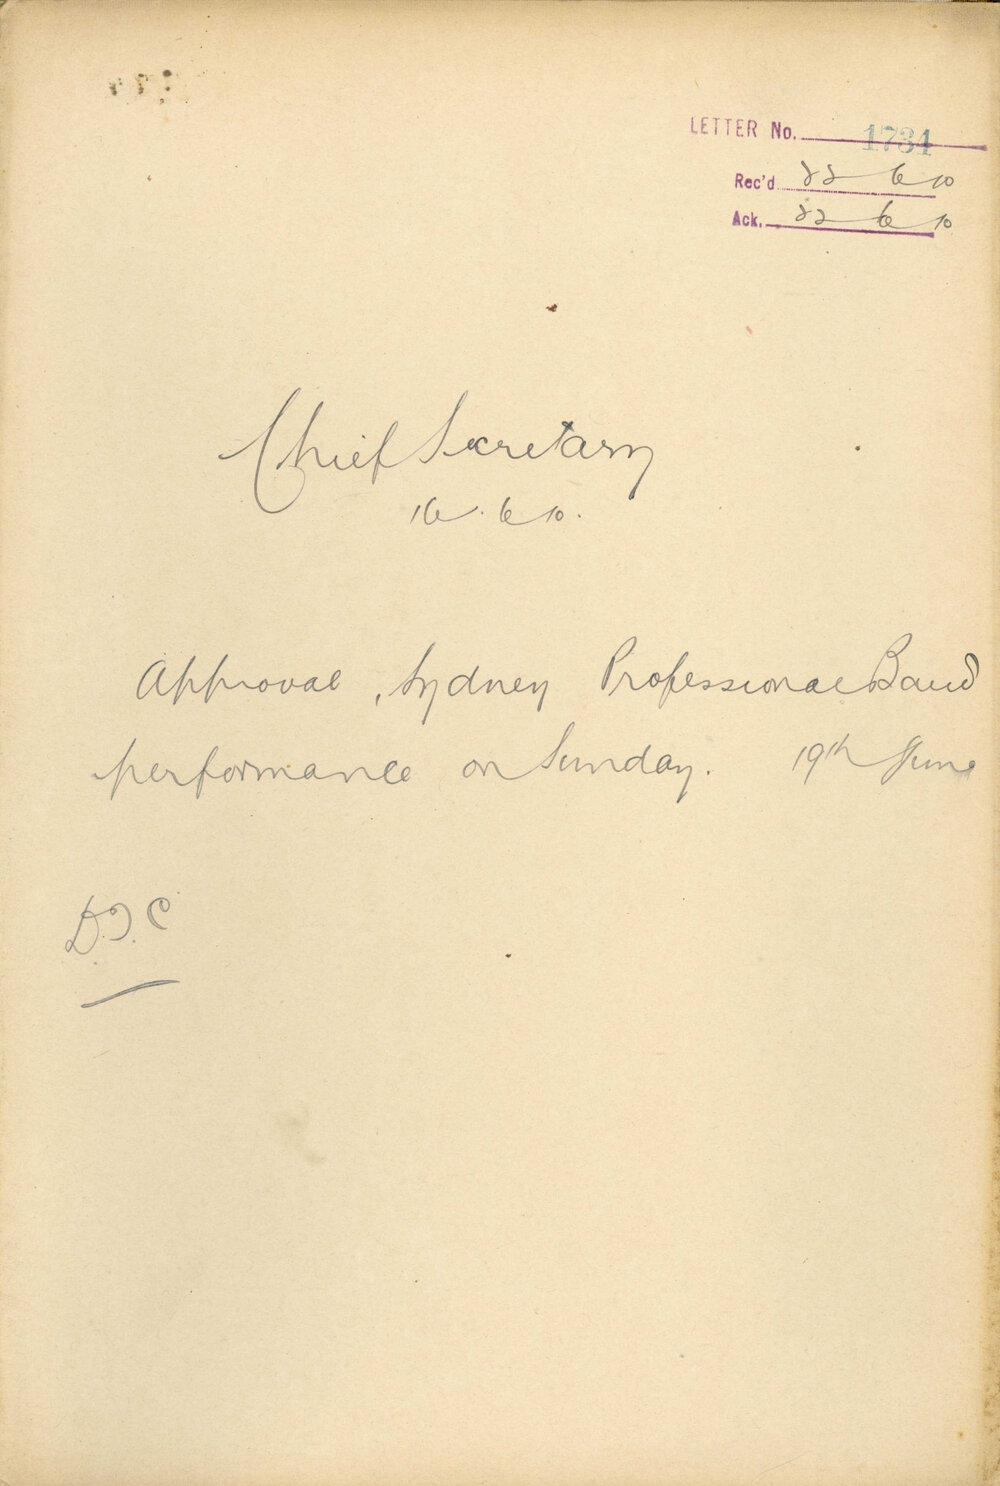 LETTER No. 1734
Rec'd 22 6 10
Ack. 22 6 10
Chief Secretary
16. 6 10.
Approval, Sydney Professional Band
performance on Sunday. 19th June
D.T.C